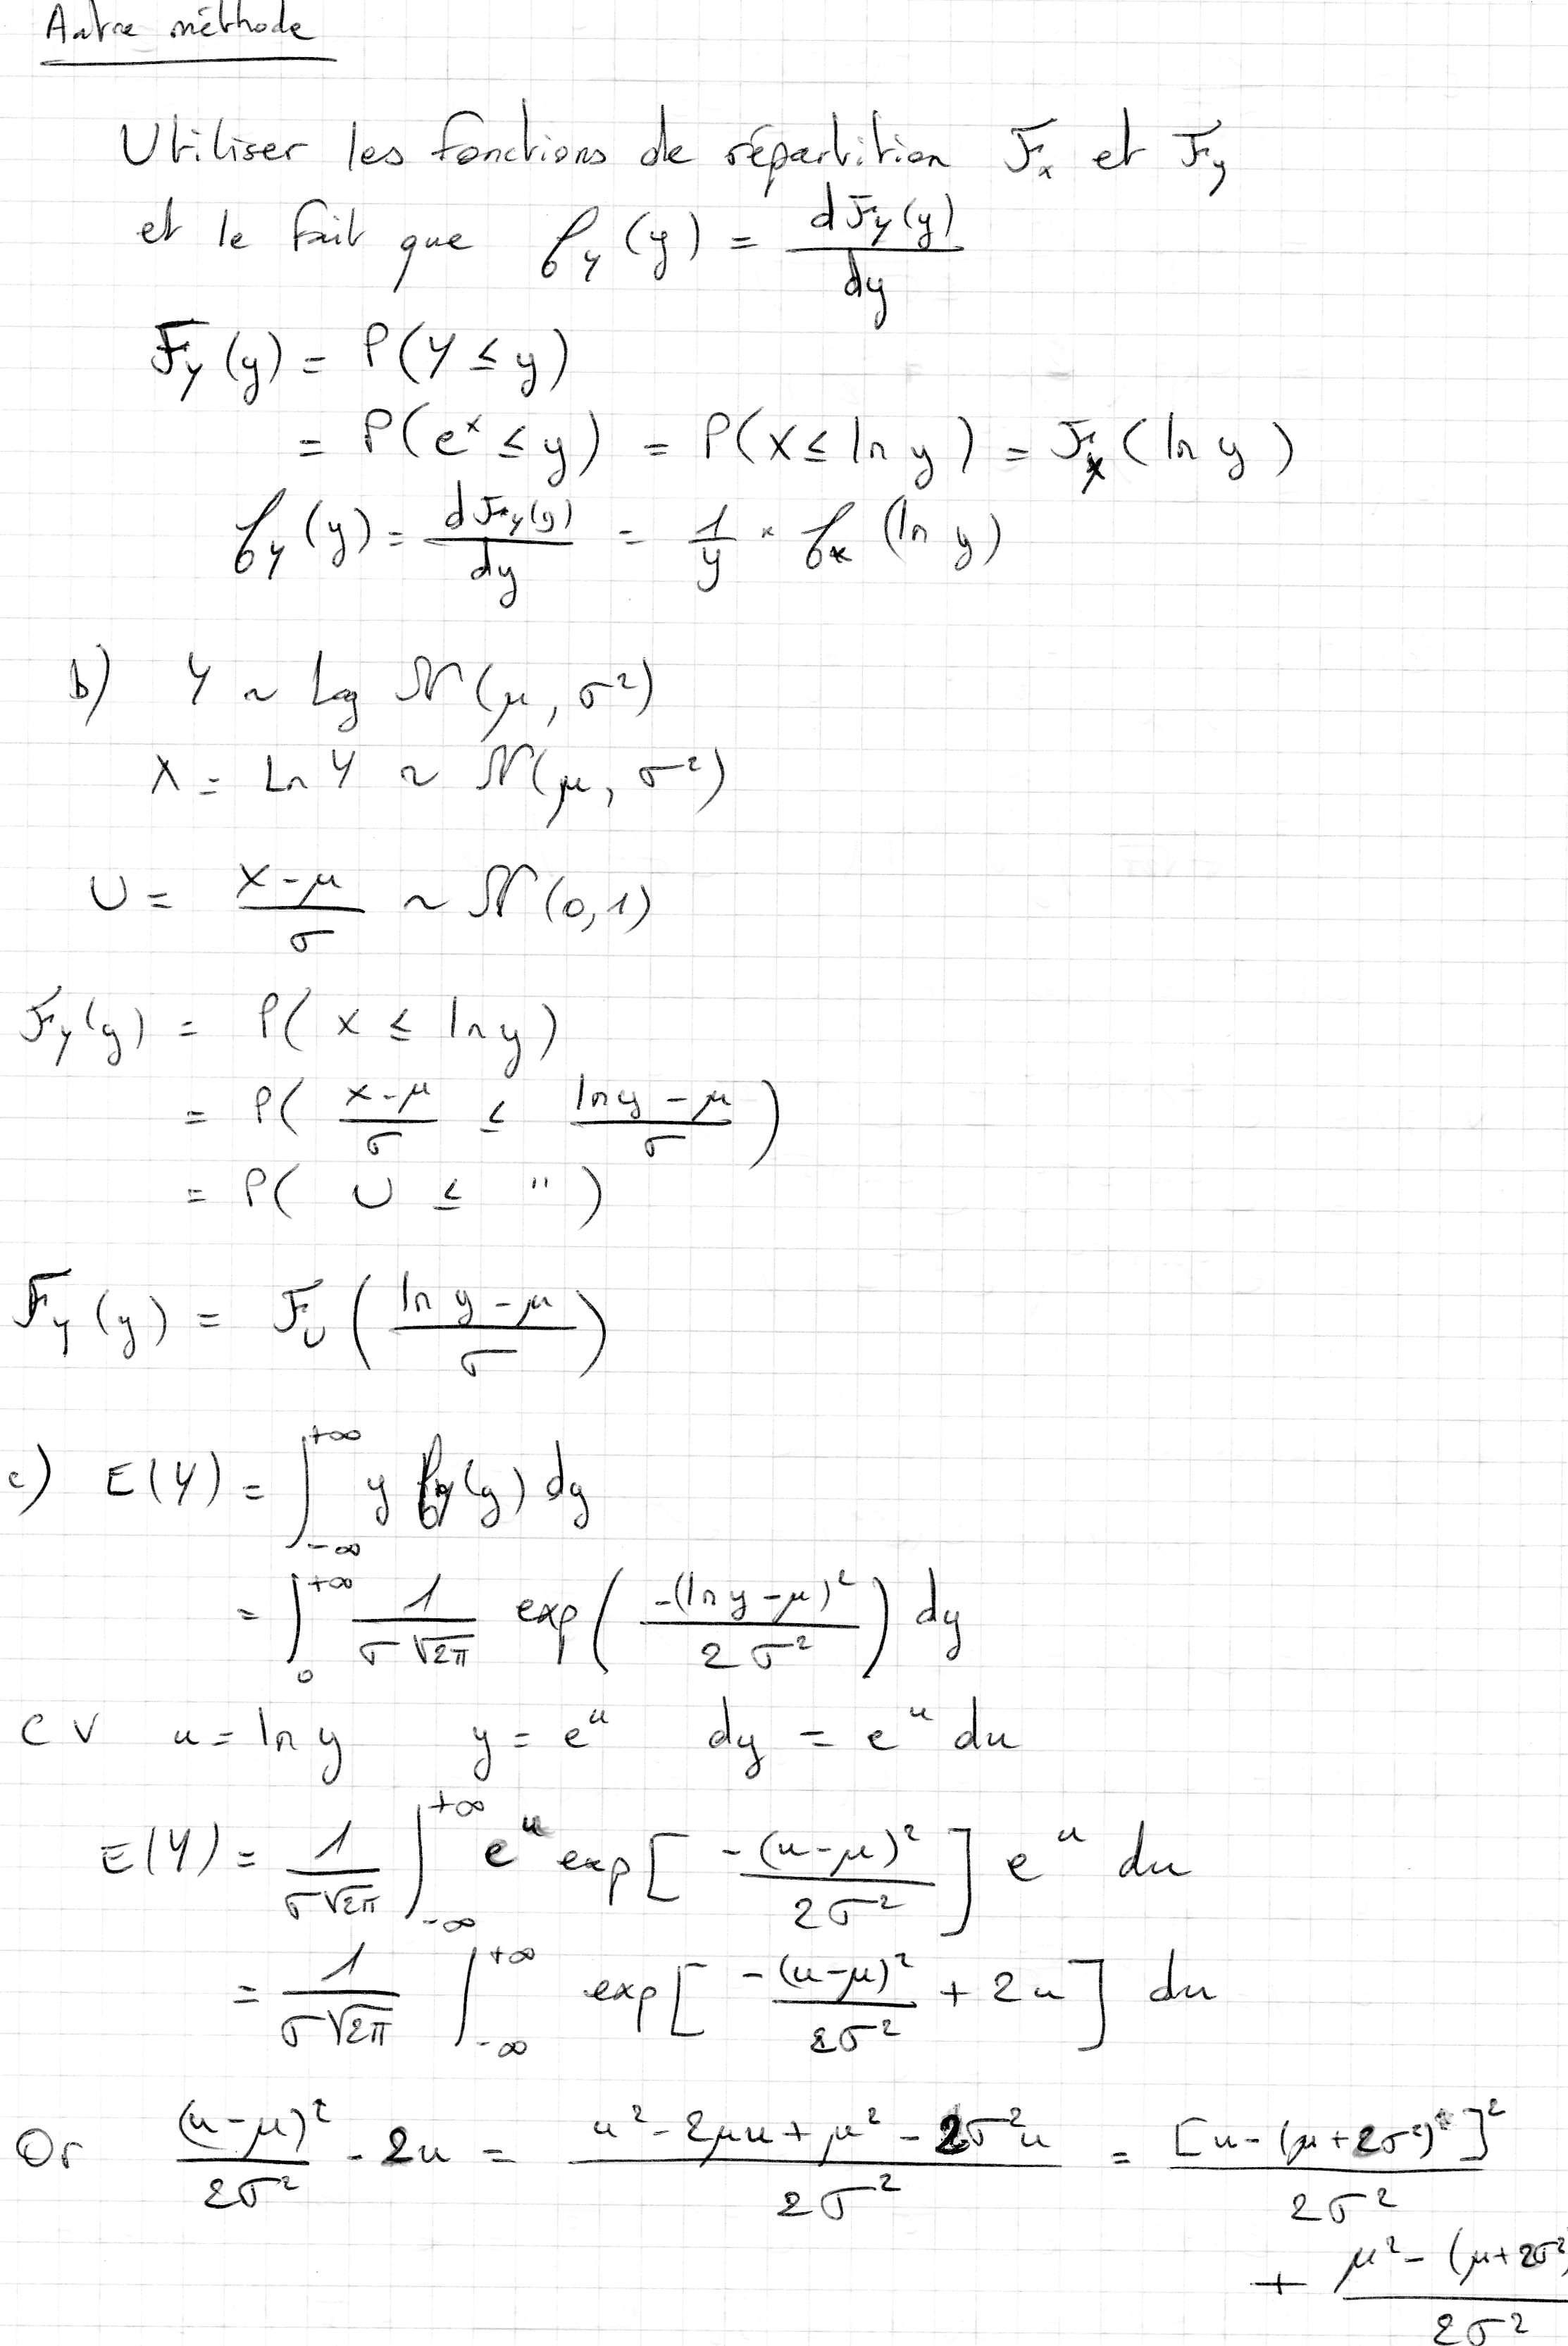 Autre méthode
Utiliser les fonctions de répartition F_x et F_y
et le fait que f_Y(y) = dF_Y(y)/dy
F_Y(y) = P(Y ≤ y)
= P(e^x ≤ y) = P(X ≤ ln y) = F_X(ln y)
f_Y(y) = dF_Y(y)/dy = 1/y × f_X(ln y)
b) Y ~ Log N(μ, σ²)
X = Ln Y ~ N(μ, σ²)
U = (X-μ)/σ ~ N(0,1)
F_Y(y) = P(X ≤ ln y)
= P((X-μ)/σ ≤ (ln y - μ)/σ)
= P(U ≤ ")
F_Y(y) = F_U((ln y - μ)/σ)
c) E(Y) = ∫_{-∞}^{+∞} y f_Y(y) dy
= ∫_0^{+∞} 1/(σ√2π) exp(-(ln y - μ)²/(2σ²)) dy
CV u = ln y y = e^u dy = e^u du
E(Y) = 1/(σ√2π) ∫_{-∞}^{+∞} e^u exp[-(u-μ)²/(2σ²)] e^u du
= 1/(σ√2π) ∫_{-∞}^{+∞} exp[-(u-μ)²/(2σ²) + 2u] du
Or (u-μ)²/(2σ²) - 2u = (u² - 2μu + μ² - 2σ²u)/(2σ²) = [u - (μ+2σ²)]²/(2σ²)
+ (μ² - (μ+2σ²)/(2σ²)